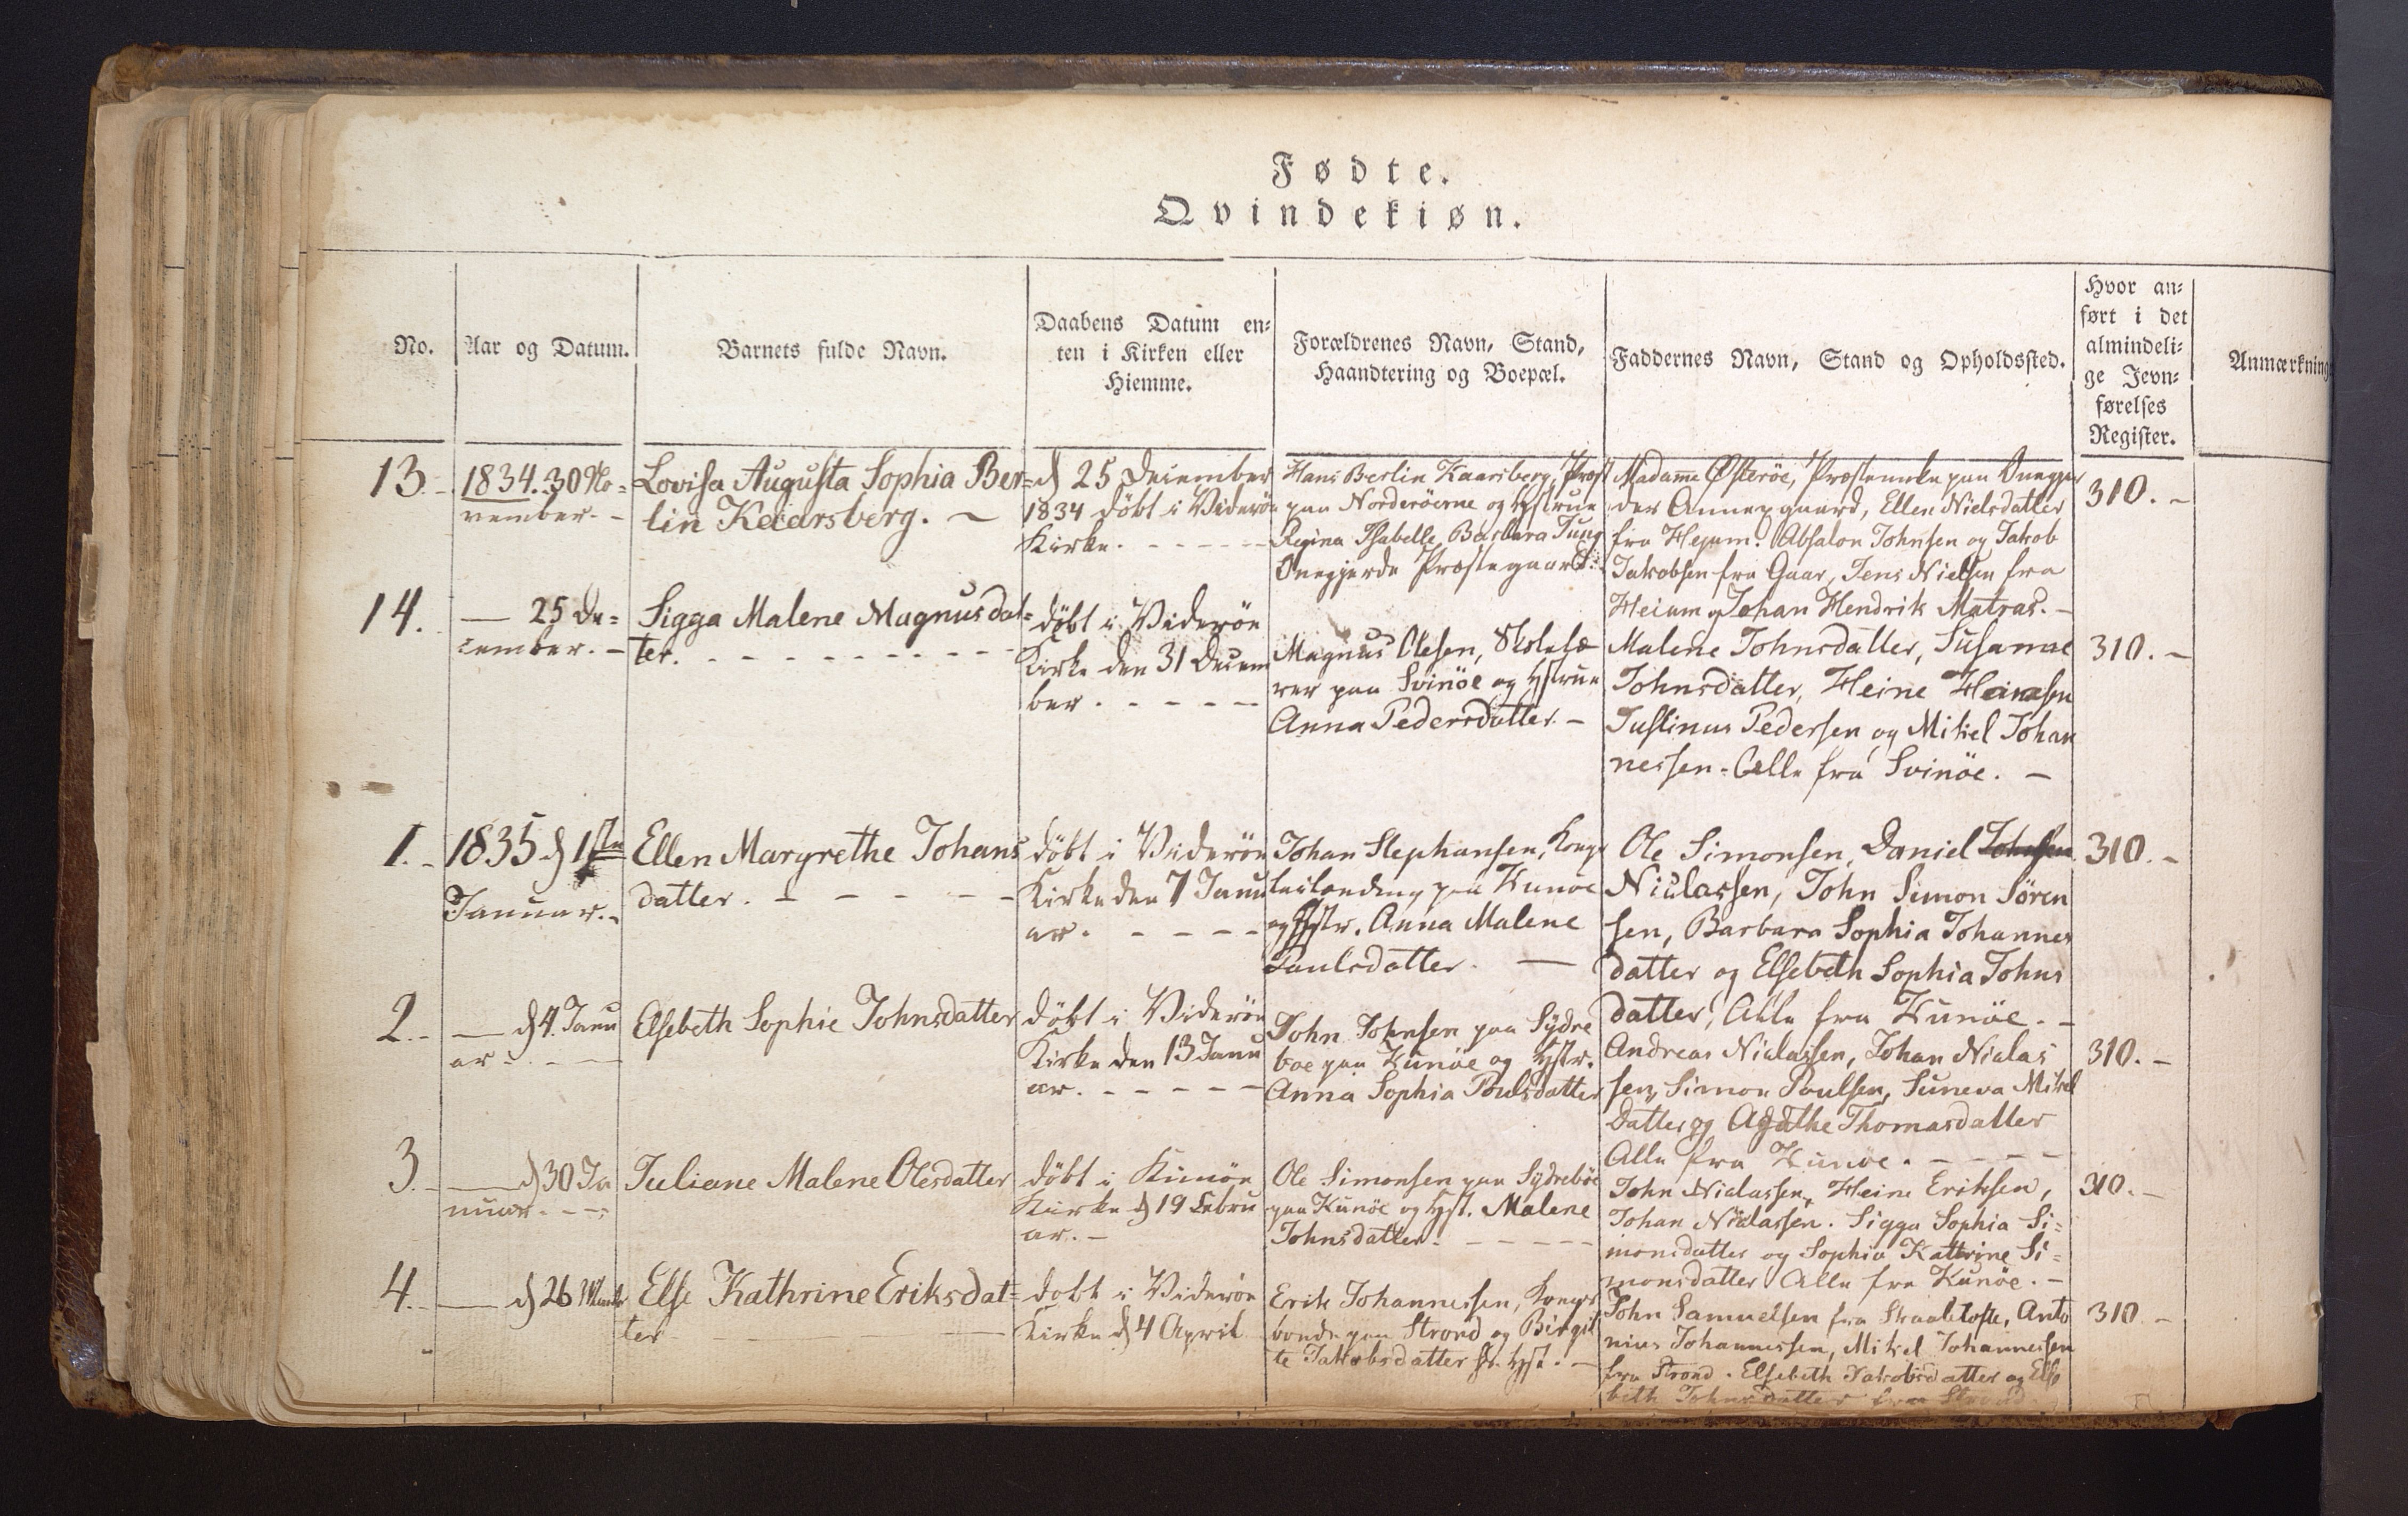 Fødte.
Qvindekiøn.
No.
Aar og Datum.
Barnets fulde Navn.
Daabens Datum en-
ten i Kirken eller
Hiemme.
Forældrenes Navn, Stand,
Haandtering og Boepæl.
Faddernes Navn, Stand og Opholdssted.
Hvor an-
ført i det
almindeli-
ge Jevn-
førelses
Register.
Anmærkning
13.
1834. 30 No-
vember. -
Lovisa Augusta Sophia Ber-
lin Kaarsberg. -
d 25 December
1834 döbt i Videröe
Kirke.
Hans Berlin Kaarsberg, Præst
paa Norderöerne og Hystrue
Regina Isabelle Barbara Jung
Onegjerde Præstegaard.
Madame Østeröe, Præsteenke paa Onegjer
des Annexgaard, Ellen Nielsdatter
fra Hejum. Absalon Johnsen og Jakob
Jakobsen fra Gaar, Jens Nielsen fra
Heium og Johan Hendrik Matras. -
310. -
14.
— 25 De-
cember. -
Sigga Malene Magnusdat-
ter.
döbt i Videröe
Kirke den 31 Decem
ber.
Magnus Olesen, Skolelæ
rer paa Svinöe og Hystrue
Anna Pedersdatter. -
Malene Johnsdatter, Susanne
Johnsdatter, Heine Heinesen
Justinus Pedersen og Mikel Johan
nessen. Alle fra Svinöe. -
310. -
1. -
1835 d 1ste
Januar. -
Ellen Margrethe Johans
datter.
döbt i Videröe
Kirke den 7 Janu
ar.
Johan Stephansen, Konge
paa Kunöe
og Hystr. Anna Malene
Paulsdatter. —
Ole Simonsen, Daniel Johnsen
Niclassen, John Simon Sören
sen, Barbara Sophia Johannes
datter og Elsebeth Sophia Johns
datter, Alle fra Kunöe. -
310. -
2. -
— d 4. Janu
ar.
Elsebeth Sophie Johnsdatter
döbt i Videröe
Kirke den 13 Janu
ar.
John Johnsen paa Sydre
boe paa Kunöe og Hystr.
Anna Sophia Poulsdatter
Andreas Niclassen, Johan Niclas
sen, Simon Poulsen, Suneva Mikel
datter og Agathe Thomasdatter
Alle fra Kunöe.
310. -
3. -
— d 30 Ja
nuar.
Juliane Malene Olesdatter
döbt i Kunöe
Kirke d 19 Febru
ar. -
Ole Simonsen paa Sydreböe
paa Kunöe og Hyst. Malene
Johnsdatter.
John Niclassen, Heine Eriksen,
Johan Niclassen. Sigga Sophia Si-
monsdatter og Sophia Kathrine Si-
monsdatter Alle fra Kunöe. -
310. -
4. -
— d 26 Marts
Else Kathrine Eriksdat-
ter
döbt i Videröe
Kirke d 4 April
Erik Johannessen, Konges
bonde paa Strond og Birgit
te Jakobsdatter
John Samuelsen fra Skaaletofte, Anto
nius Johannessen, Mikel Johannessen
fra Strond. Elsebeth Jakobsdatter og Else
beth Johnsdatter fra Strond.
310. -